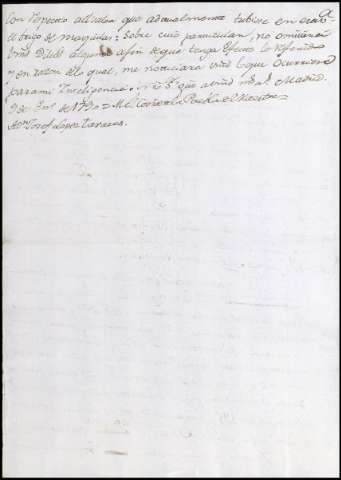 con respecto al valor que actualmente tubiere en esa
de trigo de maquilas: sobre cuio particular, no omitirá
vmd Dilixª alguna afin de que tenga efecto lo referido
y en razon de lo qual, me noticiará vmd lo que ocurriere
para mi Inteligencia. Dios gue a vmd ms as Madrid
9 de de 1790 = El Conde de la Puebla del Maestre =
Dn Josef Lopez